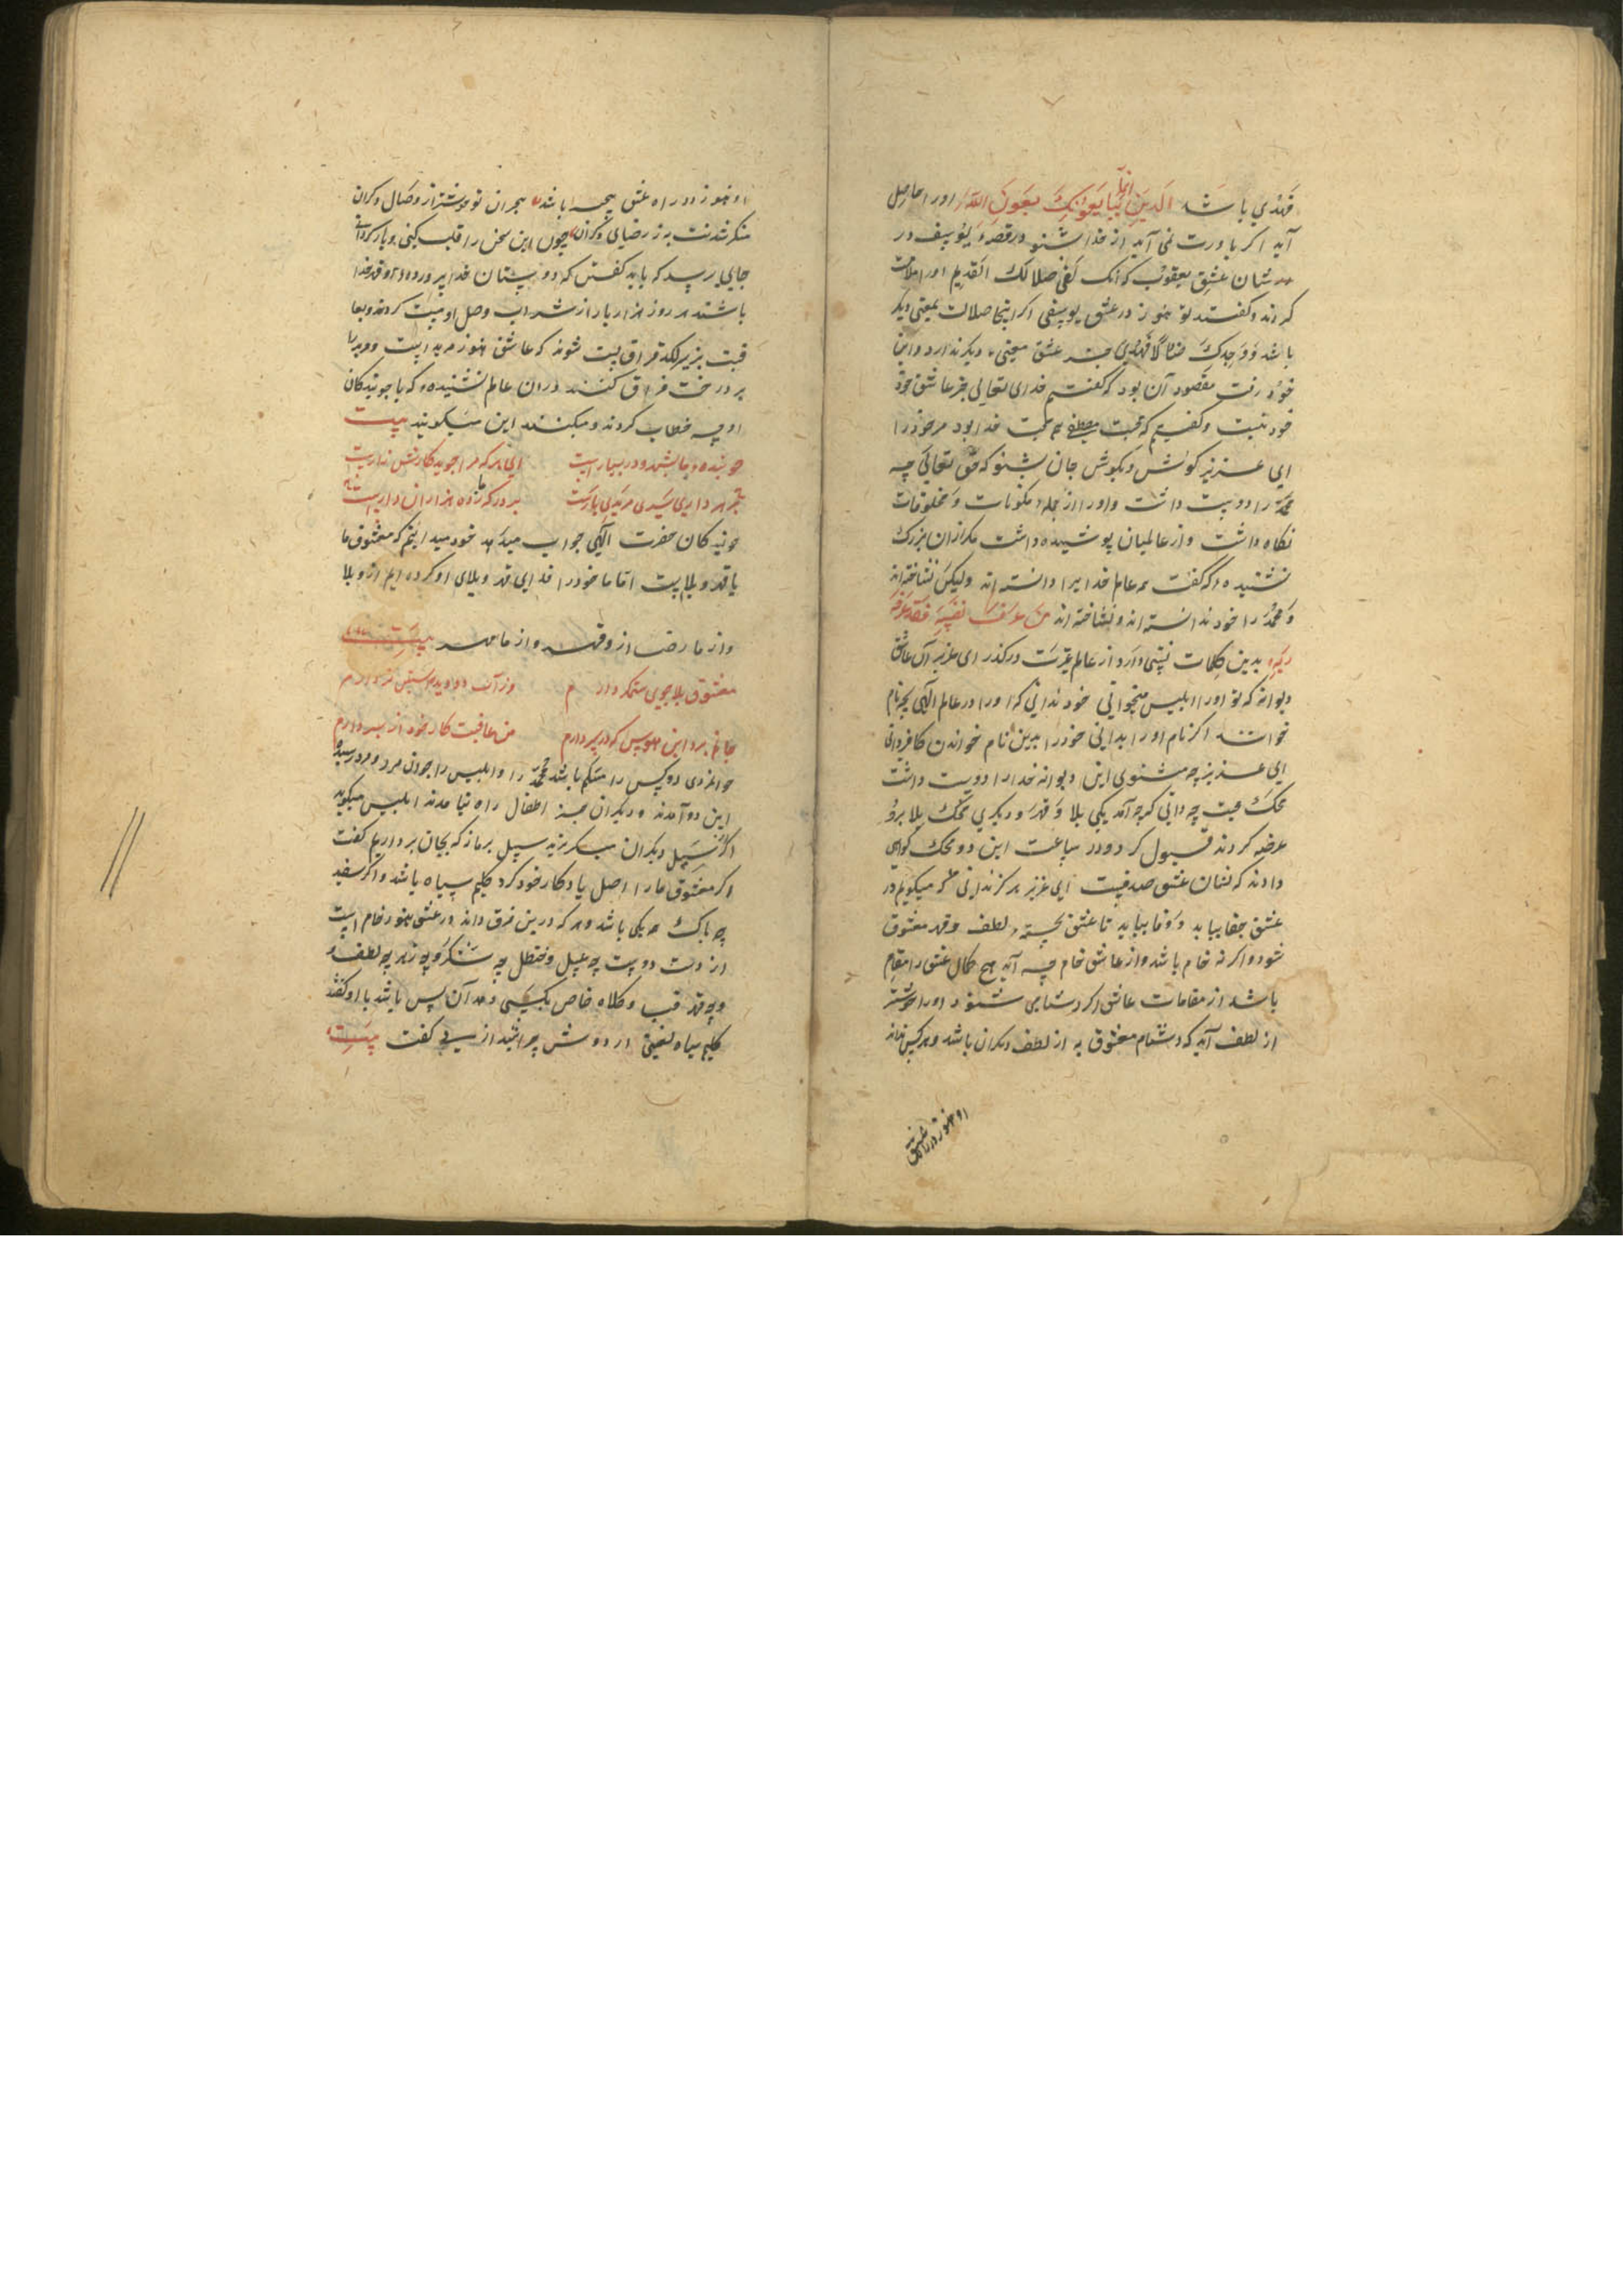 فهدی باشد الذین یبایعونک انما یبایعون الله اورا حاصل
آید اکر باورت نمی آید از خدا شنو در قصه یوسف در
شان عشق یعقوب که انک لفی ضلالک القدیم اورا ملامت
کردند و کفتند تو هنوز در عشق یوسفی اکر اینجا ضلالت بمعنی دیکر
باشد ووجدک ضالا فهدی جز عشق معنی دیکر ندارد و این
خود رفت مقصود آن بود که کفتیم خدای تعالی جز عاشق خود
خود نیست و کفتیم که محبت مصطفی هم محبت خدا بود مر خود را
ای عزیز کوش دیکوش جان بشنو که حق تعالی چه
محمد را دوست داشت و اورا از جمله مکونات و مخلوقات
نکاه داشت و از عالمیان پوشیده داشت مکر از آن بزرک
نشنیده که کفت همه عالم خدایرا دانسته اند ولیکن نشاخته اند
و محمد را خود ندانسته اند و نشاخته اند من عرف نفسه فقد عرف
ربه بدین کلمات نسبتی دارد از عالم غیرت درکذر ای عزیز آن عاشق
دیوانه که تو اورا ابلیس میخوانی خود ندانی که اورا در عالم الهی بچه نام
خوانند اکر نام او را بدانی خود را بدین نام خواندن کافر دانی
ای عزیز چه میشنوی این دیوانه خدا را دوست داشت
محک محبت چه دانی که چه آمد یکی بلا و قهر و دیکری محک بلا برو
عرضه کردند قبول کرد و در ساعت این دو محک کواهی
دادند که نشان عشق صدقیت ای عزیز هرکز ندانی که میکویم در
عشق جفا بباید و وفا بباید تا عشق پخته لطف و قهر معشوق
شود و اکر نه خام باشد و از عاشق خام چه آید هیچ کمال عشق را مقام
باشد از مقامات عاشق اکر دشنامی شنود اورا خوشتر
از لطف آید که دشنام معشوق به از لطف دیکران باشد و هر کس نداند
او هنوز در راه عشق
او هنوز در راه عشق بیخبر باشد هجران تو خوشتر از وصال دکران
منکر شدنت به ز رضای دکران چون این سخن را قلب کنی و بازکردانی
جایی رسد که باید کفتن که دوستان خدا پرورده اند و قهر خدا
باشند هر روز هزار بار از شراب وصل او مست کردند و بعا
قبت بزیر لکد فراق پست شوند که عاشق هنوز مرید است و مرید را
بر درخت فراق کنند در آن عالم نشنیده که با جویندکان
او چه خطاب کردند و میکنند این میکویند بیت
جوینده ما بشهر و در بسیار است ای هر که مرا جوید کارش زار است
بر در که ما زده هزاران دار است
جویندکان حضرت الهی جواب میدهند خود میدانیم که معشوق ما
با قهر و بلا است اما ما خود را فدای قهر و بلای او کرده ایم از و بلا
و از ما رضا از و قهر و از ما مهر بیت
معشوق بلا جوی ستمکر دارم
جانم برد این هوس که در سر دارم من عاقبت کار خود از بر دارم
جوانمردی دو کس را مسلم باشد محمد را و ابلیس را جوان مرد و مرد رسیده
این دو آمدند و دیکران جز اطفال راه نیامدند ابلیس میکوید
اکر از سیل دیکران میکریزند سیل بر ما زکه بجان برداریم کفت
اکر معشوق ما را اهل یادکار خود کرد کلیم سیاه باشد و اکر سفید
چه باک هر یکی باشد و هر که درین فرق داند در عشق هنوز خام است
از دست دوست چه عسل و حنظل چه شکر و چه زهر چه لطف و
و چه قهر قبا و کلاه خاص بکسی دهد آن پس باشد با او کفتند
کلیم سیاه لعنتی از دوش چرا نیندازی کفت بیت